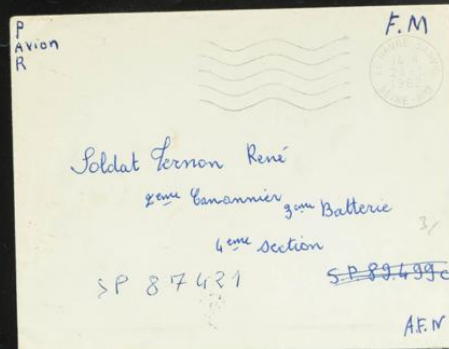 P
Avion
R
F.M
14 H
Soldat Vernon René
2eme Canonnier 3eme Batterie
4eme Section
3/
SP 87421
S.P 89.499c
A.F.N